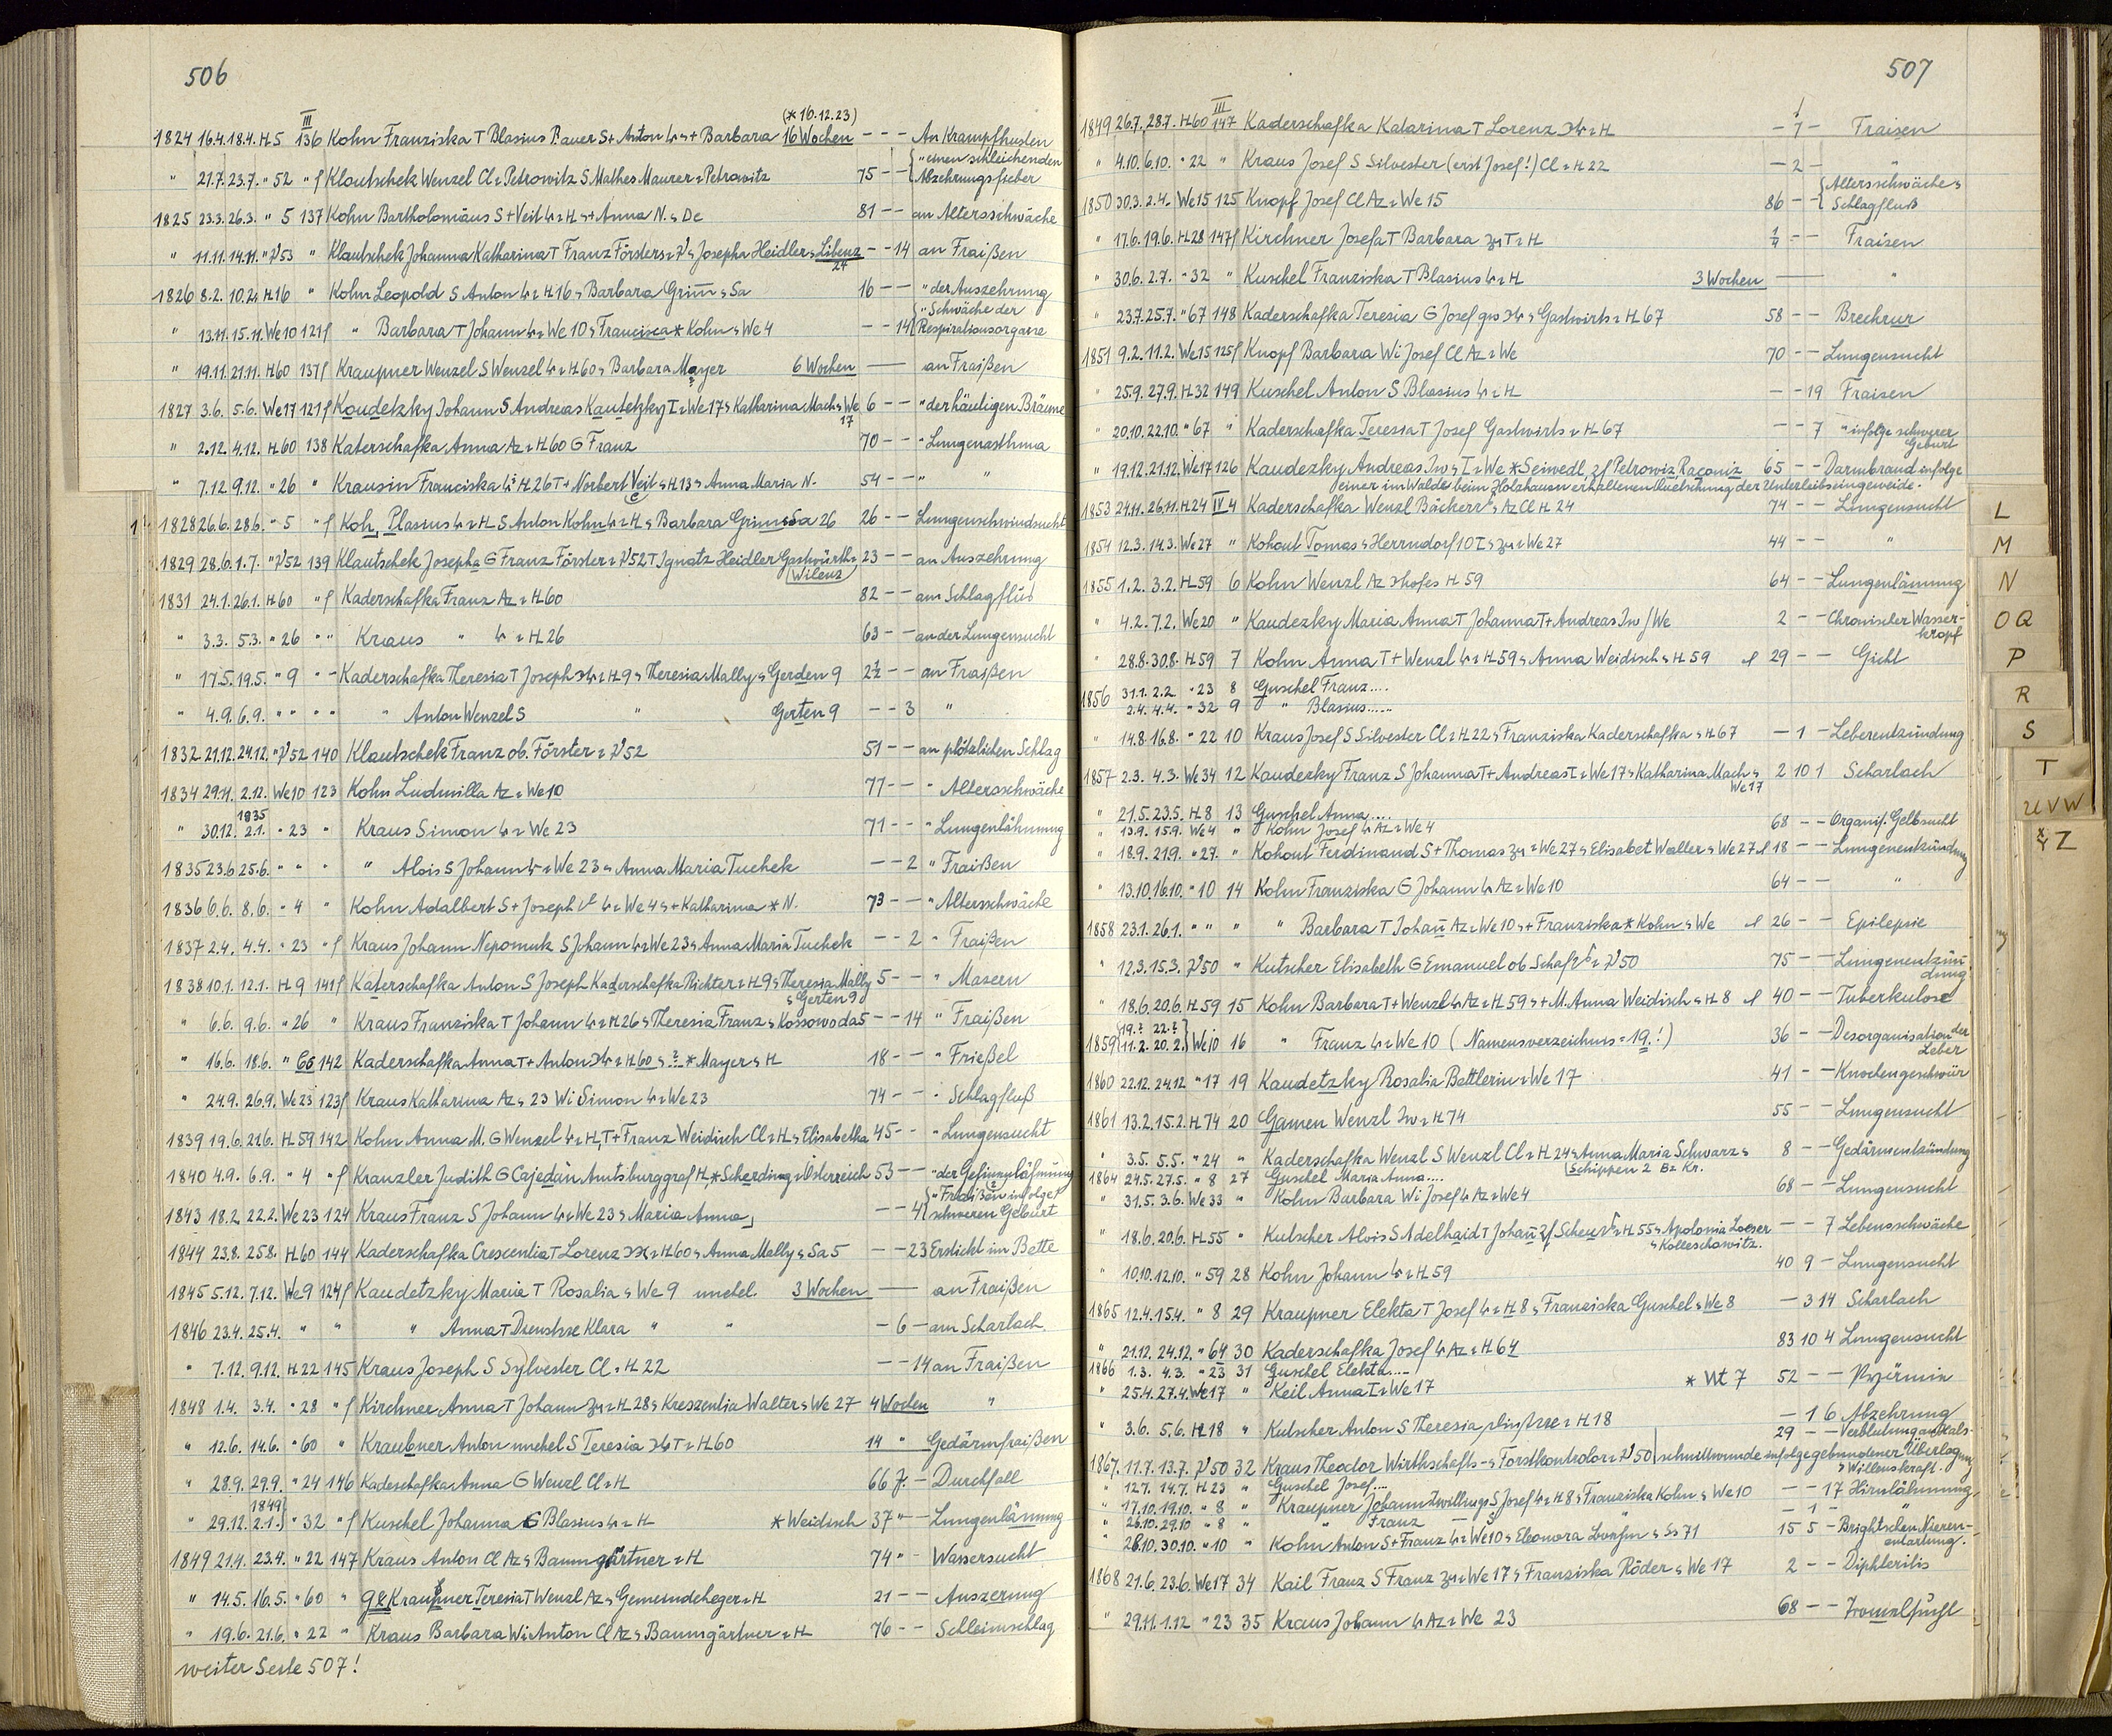 506
III
(*16.12.23)
1824 16.4. 18.4. H 5 136 Kohn Franziska T Blasius Bauer S + Anton + Barbara 16 Wochen - - - An Krampfhusten
" 21.7. 23.7. " 52 " f Klautschek Wenzel Cl Petrowitz S Mathes Maurer Petrowitz 75 - - " einen schleichenden
Abzehrungsfieber
1825 23.3. 26.3. " 5 137 Kohn Bartholomäus S + Veit H + Anna N. De 81 - - an Altersschwäche
" 11.11. 14.11. " 53 " Klautschek Johanna Katharina T Franz Försters Josepha Heidler Libenz - - 14 an Fraißen
24
1826 8.2. 10.2. H 16 " Kohn Leopold S Anton H 16 Barbara Grim̄ Sa 16 - - " der Auszehrung
" 13.11. 15.11. We 10 121 f " Barbara T Johann We 10 Francisca * Kohn We 4 - - 14 " Schwäche der
Respirationsorgane
" 19.11. 21.11. H 60 137 f Kraupner Wenzel S Wenzel H 60 Barbara Mayer 6 Wochen an Fraißen
1827 3.6. 5.6. We 17 121 f Koudetzky Johann S Andreas Kautetzky I We 17 Katharina Mach We 6 - - " der häutigen Bräune
17
" 2.12. 4.12. H 60 138 Katerschafka Anna Az H 60 G Franz 70 - - " Lungenasthma
" 7.12. 9.12. " 26 " Krausin Franciska H 26 T + Norbert Veit H 13 Anna Maria N. 54 - - " "
1828 26.6. 28.6. " 5 " f Koh, Plasius H S Anton Kohn H Barbara Grim Sa 26 26 - - Lungenschwindsucht
1829 28.6. 1.7. " 52 139 Klautschek Josepha G Franz Förster 52 T Ignatz Heidler Gastwürth 23 - - an Auszehrung
(Wilenz)
1831 24.1. 26.1. H 60 " f Kaderschafka Franz Az H 60 82 - - am Schlagfluß
" 3.3. 5.3. " 26 " " Kraus " H 26 63 - - an der Lungensucht
" 17.5. 19.5. " 9 " - Kaderschafka Theresia T Joseph H 9 Theresia Mally Gerden 9 2½ - - an Fraißen
" 4.9. 6.9. " " " " " Anton Wenzel S " Gerten 9 - - 3 "
1832 21.12. 24.12. " 52 140 Klautschek Franz ob. Förster 52 51 - - an plötzlichen Schlag
1834 29.11. 2.12. We 10 123 Kohn Ludmilla Az We 10 77 - - " Altersschwäche
1835
" 30.12. 2.1. " 23 " Kraus Simon We 23 71 - - " Lungenlähmung
1835 23.6. 25.6. " " " " Alois S Johann We 23 Anna Maria Tuchek - - 2 " Fraißen
1836 6.6. 8.6. " 4 " Kohn Adalbert S + Joseph We 4 + Katharina * N. 73 - - " Altersschwäche
1837 2.4. 4.4. " 23 " f Kraus Johann Nepomuk S Johann We 23 Anna Maria Tuchek - - 2 " Fraißen
1838 10.1. 12.1. H 9 141 f Katerschafka Anton S Joseph Kaderschafka Richter H 9 Theresia Mally 5 - - " Masern
Gerten 9
" 6.6. 9.6. " 26 " Kraus Franziska T Johann H 26 Theresia Franz Kossowoda 5 - - 14 " Fraißen
" 16.6. 18.6. " 66 142 Kaderschafka Anna T + Anton H 60 ? * Mayer H 18 - - " Frießel
" 24.9. 26.9. We 23 123 f Kraus Katharina Az 23 Wi Simon We 23 74 - - " Schlagfluß
1839 19.6. 22.6. H 59 142 Kohn Anna M. G Wenzel H, T + Franz Weidisch Cl H Elisabetha 45 - - " Lungensucht
1840 4.9. 6.9. " 4 " f Kranzler Judith G Cajedan Amtsburggraf H, * Scherding Österreich 53 - - " der Gehirnlähmung
1843 18.2. 22.2. We 23 124 Kraus Franz S Johann We 23 Maria Anna - - 4 " Fraißen infolge
schweren Geburt
1844 23.8. 25.8. H 60 144 Kaderschafka Crescentia T Lorenz H 60 Anna Mally Sa 5 - - 23 Erstickt im Bette
1845 5.12. 7.12. We 9 124 f Kaudetzky Maria T Rosalia We 9 unehel. 3 Wochen an Fraißen
1846 23.4. 25.4. " " " Anna T Klara " " - 6 - am Scharlach
" 7.12. 9.12. H 22 145 Kraus Joseph S Sylvester Cl H 22 - - 14 an Fraißen
1848 1.4. 3.4. " 28 " f Kirchner Anna T Johann H 28 Kreszenlia Walter We 27 4 Wochen "
" 12.6. 14.6. " 60 " Kraubner Anton unehel S Teresia T H 60 14 " Gedärmfraißen
" 28.9. 29.9. " 24 146 Kadeschafka Anna G Wenzl Cl H 66 7. - Durchfall
1849
" 29.12. 2.1. " 32 " f Kuschel Johanna G Blasius H * Weidisch 37 " - Lungenlämung
1849 21.4. 23.4. " 22 147 Kraus Anton Cl Az Baumgärtner H 74 " - Wassersucht
" 14.5. 16.5. " 60 " Kraupner Teresia T Wenzl Az Gemeindeheger H 21 - - Auszerung
" 19.6. 21.6. " 22 " Kraus Barbara Wi Anton Cl Az Baumgärtner H 76 - - Schleimschlag
weiter Seite 507!
507
III
1849 26.7. 28.7. H 60 147 Kaderschafka Katarina T Lorenz H - 7 - Fraisen
" 4.10. 6.10. " 22 " Kraus Josef S Silvester (erst Josef!) Cl H 22 - 2 - "
1850 30.3. 2.4. We 15 125 Knopf Josef Cl Az We 15 86 - - Altersschwäche
Schlagfluß
" 17.6. 19.6. H 28 147 f Kirchner Josefa T Barbara T H ¼ - - Fraisen
" 30.6. 2.7. " 32 " Kuschel Franziska T Blasius H 3 Wochen "
" 23.7. 25.7. " 67 148 Kaderschafka Teresia G Josef gew Gastwirts H 67 58 - - Brechrur
1851 9.2. 11.2. We 15 125 f Knopf Barbara Wi Josef Cl Az We 70 - - Lungensucht
" 25.9. 27.9. H 32 149 Kuschel Anton S Blasius H - - 19 Fraisen
" 20.10. 22.10. " 67 " Kaderschafka Teresia T Josef Gastwirts H 67 - - 7 " infolge schwerer
Geburt
" 19.12. 21.12. We 17 126 Kaudezky Andreas Inw I We * Seiwedl, Petrowiz Raconiz 65 - - Darmbrand infolge
einer im Walde beim Holzhauen erhaltenen Quetschung der Unterleibseingeweide.
1853 24.11. 26.11. H 24 IV 4 Kaderschafka Wenzl Bäckerr Az Cl H 24 74 - - Lungensucht
1854 12.3. 14.3. We 27 " Kohout Tomas Herrndorf 10 I We 27 44 - - "
1855 1.2. 3.2. H 59 6 Kohn Wenzl Az hofes H 59 64 - - Lungenlämung
" 4.2. 7.2. We 20 " Kaudezky Maria Anna T Johanna T + Andreas Inw We 2 - - Chronischer Wasser-
kropf
" 28.8. 30.8. H 59 7 Kohn Anna T + Wenzl H 59 Anna Weidisch H 59 29 - - Gicht
1856 31.1. 2.2. " 23 8 Guschel Franz....
2.4. 4.4. " 32 9 " Blasius.....
" 14.8. 16.8. " 22 10 Kraus Josef S Silvester Cl H 22 Franziska Kaderschafka H 67 - 1 - Leberentzündung
1857 2.3. 4.3. We 34 12 Kaudezky Franz S Johanna T + Andreas I We 17 Katharina Mach 2 10 1 Scharlach
We 17
" 21.5. 23.5. H 8 13 Guschel Anna....
" 13.9. 15.9. We 4 " Kohn Josef Az We 4 68 - - Organis. Gelbsucht
" 18.9. 21.9. " 27. " Kohout Ferdinand S + Thomas We 27 Elisabet Waller We 27 18 - - Lungenentzündung
" 13.10. 16.10. " 10 14 Kohn Franziska G Johann Az We 10 64 - - "
1858 23.1. 26.1. " " " " Barbara T Johan̄ Az We 10 + Franziska * Kohn We 26 - - Epilepsie
" 12.3. 15.3. 50 " Kutscher Elisabeth G Emanuel ob Schaf 50 75 - - Lungenentzün
dung
" 18.6. 20.6. H 59 15 Kohn Barbara T + Wenzl Az H 59 + M. Anna Weidisch H 8 40 - - Tuberkulose
19.? 22.?
1859 11.2. 20.2. We 10 16 " Franz We 10 (Namensverzeichnis = 19.!) 36 - - Desorganisation der
Leber
1860 22.12. 24.12. " 17 19 Kaudetzky Rosalia Bettlerin We 17 41 - - Knochengeschwür
1861 13.2. 15.2. H 74 20 Gamen Wenzl Inw H 74 55 - - Lungensucht
" 3.5. 5.5. " 24 " Kaderschafka Wenzl S Wenzl Cl H 24 Anna Maria Schwarz 8 - - Gedärmentzündung
Schippen 2 Bz Kr.
1864 24.5. 27.5. " 8 27 Guschel Maria Anna....
" 31.5. 3.6. We 33 " Kohn Barbara Wi Josef Az We 4 68 - - Lungensucht
" 18.6. 20.6. H 55 " Kutscher Alois S Adelhaid T Johan̄ H 55 Apolonia Loeser - - 7 Lebensschwäche
Kolleschowitz.
" 10.10. 12.10. " 59 28 Kohn Johann H 59 40 9 - Lungensucht
1865 12.4. 15.4. " 8 29 Kraupner Elekta T Josef H 8 Franziska Guschel We 8 - 3 14 Scharlach
" 21.12. 24.12. " 64 30 Kaderschafka Josef Az H 64 83 10 4 Lungensucht
1866 1.3. 4.3. " 23 31 Guschel Elekta....
" 25.4. 27.4. We 17 " Keil Anna I We 17 * Wt 7 52 - - Pyärmin
" 3.6. 5.6. H 18 " Kutscher Anton S Theresia H 18 - 1 6 Abzehrung
1867 11.7. 13.7. 50 32 Kraus Theodor Wirthschafts- Forstkontrolor 50 29 - - Verblutung an Hals-
schnittwunde infolge gebundener Überlegung
Willenskraft.
" 12.7. 14.7. H 23 " Guschel Josef....
" 17.10. 19.10. " 8 " Kraupner Johann Zwillings S Josef H 8 Franziska Kohn We 10 - - 17 Hirnlähmung
" 26.10. 29.10 " 8 " " Franz - S " - 1 - "
" 28.10. 30.10. " 10 " Kohn Anton S + Franz We 10 Eleonora Ss 71 15 5 - Brightschen Nieren-
entartung.
1868 21.6. 23.6. We 17 34 Kail Franz S Franz We 17 Franziska Röder We 17 2 - - Diphteritis
" 29.11. 1.12 " 23 35 Kraus Johann Az We 23 68 - -
L
M
N
O Q
P
R
S
T
U V W
X Y Z